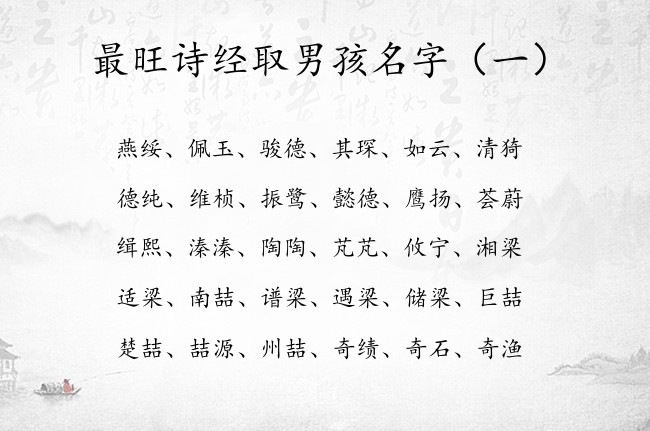 最旺诗经取男孩名字（一）
燕绥、佩玉、骏德、其琛、如云、清猗
德纯、维桢、振鹭、懿德、鹰扬、荟蔚
缉熙、溱溱、陶陶、芃芃、攸宁、湘梁
适梁、南喆、谱梁、遇梁、储梁、巨喆
楚喆、喆源、州喆、奇绩、奇石、奇渔